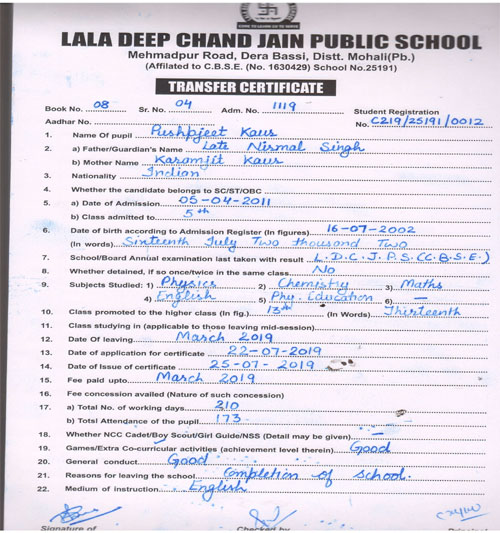 COME TO LEARN GO TO SERVE
LALA DEEP CHAND JAIN PUBLIC SCHOOL
Mehmadpur Road, Dera Bassi, Distt. Mohali(Pb.)
(Affilated to C.B.S.E. (No. 1630429) School No.25191)
TRANSFER CERTIFICATE
Book No. 08 Sr. No. 04 Adm. No. 1119 Student Registration
Aadhar No. No. C219/25191/0012
1. Name Of pupil Pushpjeet Kaur
2. a) Father/Guardian's Name Late Nirmal Singh
b) Mother Name Karamjit Kaur
3. Nationality Indian
4. Whether the candidate belongs to SC/ST/OBC
5. a) Date of Admission 05-04-2011
b) Class admitted to 5th
6. Date of birth according to Admission Register (In figures) 16-07-2002
(In words) Sixteenth July Two thousand Two
7. School/Board Annual examination last taken with result L.D.C.J.P.S(C.B.S.E.)
8. Whether detained, if so once/twice in the same class No
9. Subjects Studied: 1) Physics 2) Chemistry 3) Maths
4) English 5) Phy. Education 6) —
10. Class promoted to the higher class (In fig.) 13th (In Words) Thirteenth
11. Class studying in (applicable to those leaving mid-session)
12. Date Of leaving March 2019
13. Date of application for certificate 22-07-2019
14. Date of Issue of certificate 25-07-2019
15. Fee paid upto March 2019
16. Fee concession availed (Nature of such concession)
17. a) Total No. of working days 210
b) Total Attendance of the pupil 173
18. Whether NCC Cadet/Boy Scout/Girl Guide/NSS (Detail may be given) —
19. Games/Extra Co-curricular activities (achievement level therein) Good
20. General conduct Good
21. Reasons for leaving the school Completion of School.
22. Medium of instruction English
Signature of Checked by Principal